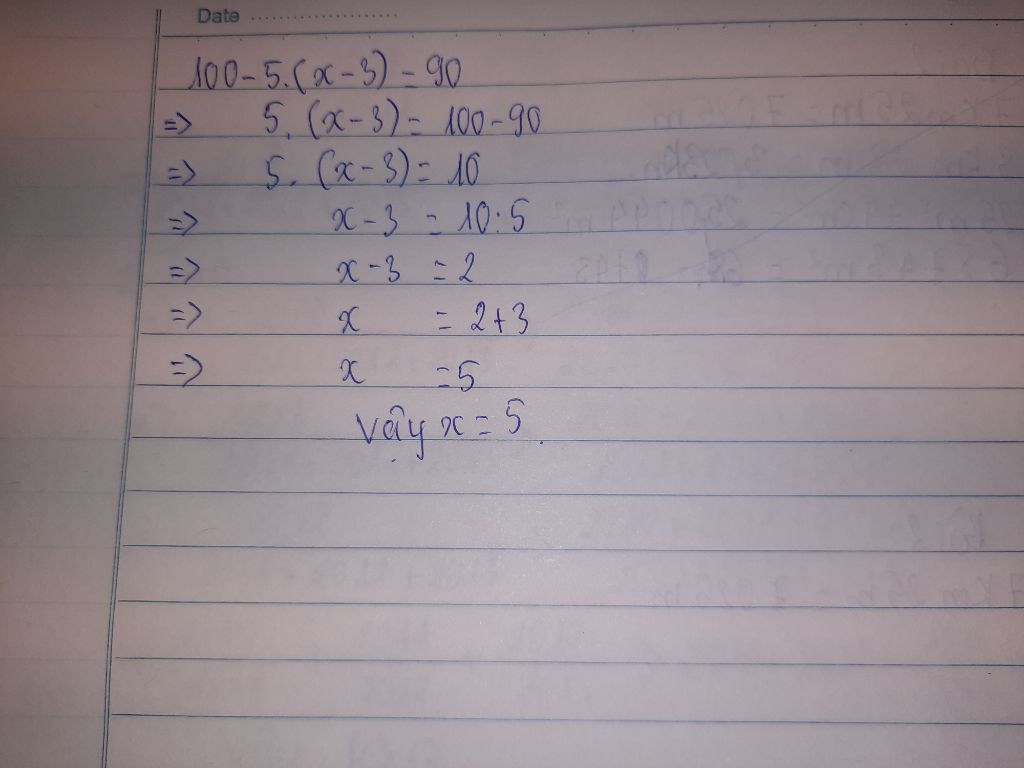 Date
100-5.(x-3)=90
=> 5.(x-3)=100-90
=> 5.(x-3)=10
=> x-3 =10:5
=> x-3 =2
=> x =2+3
=> x =5
Vậy x=5.